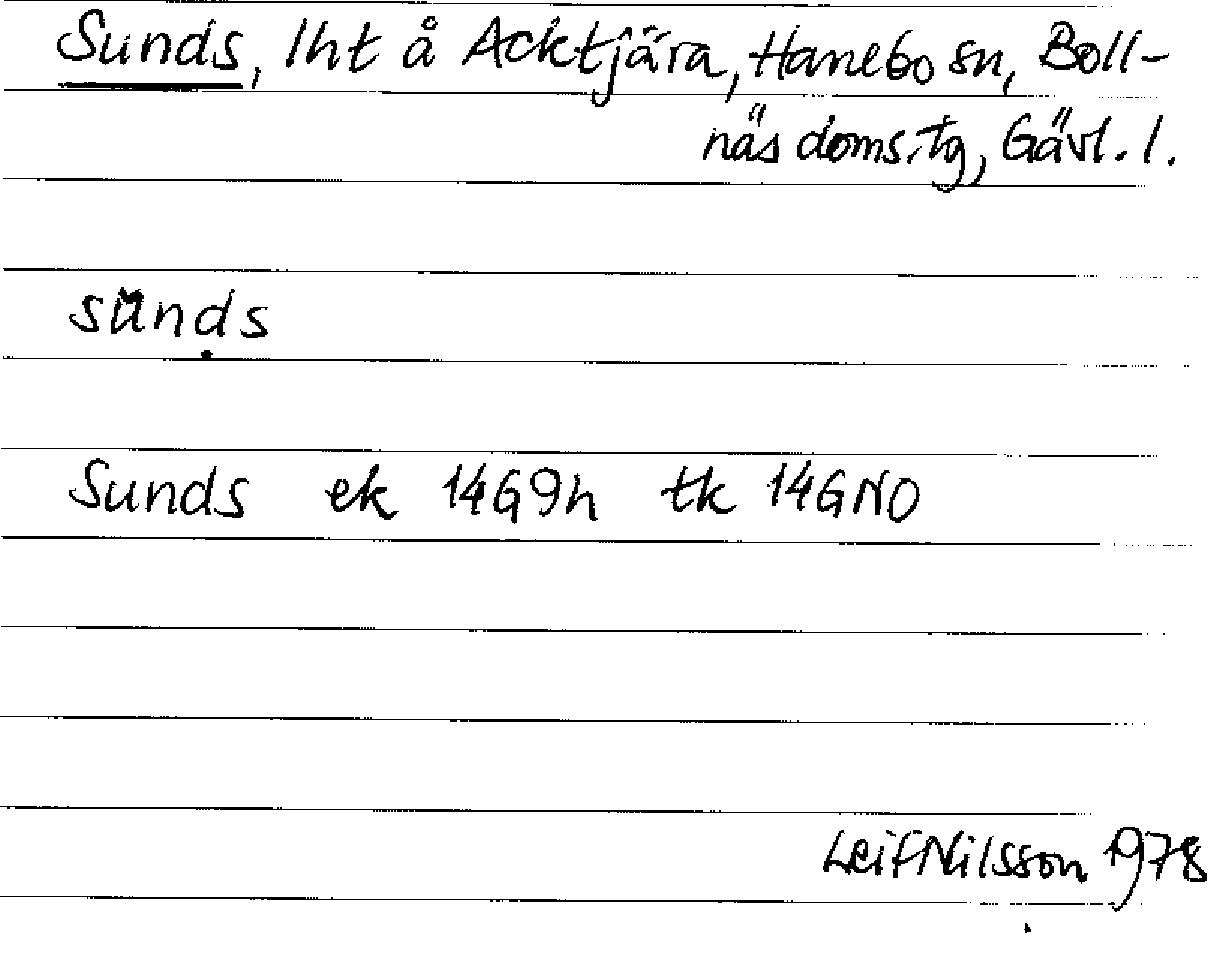 Sunds, lht å Acktjära, Hanebo sn, Boll-
näs doms.tg, Gävl. l.
sünḍs
Sunds ek 14G9h tk 14GNO
Leif Nilsson 1978